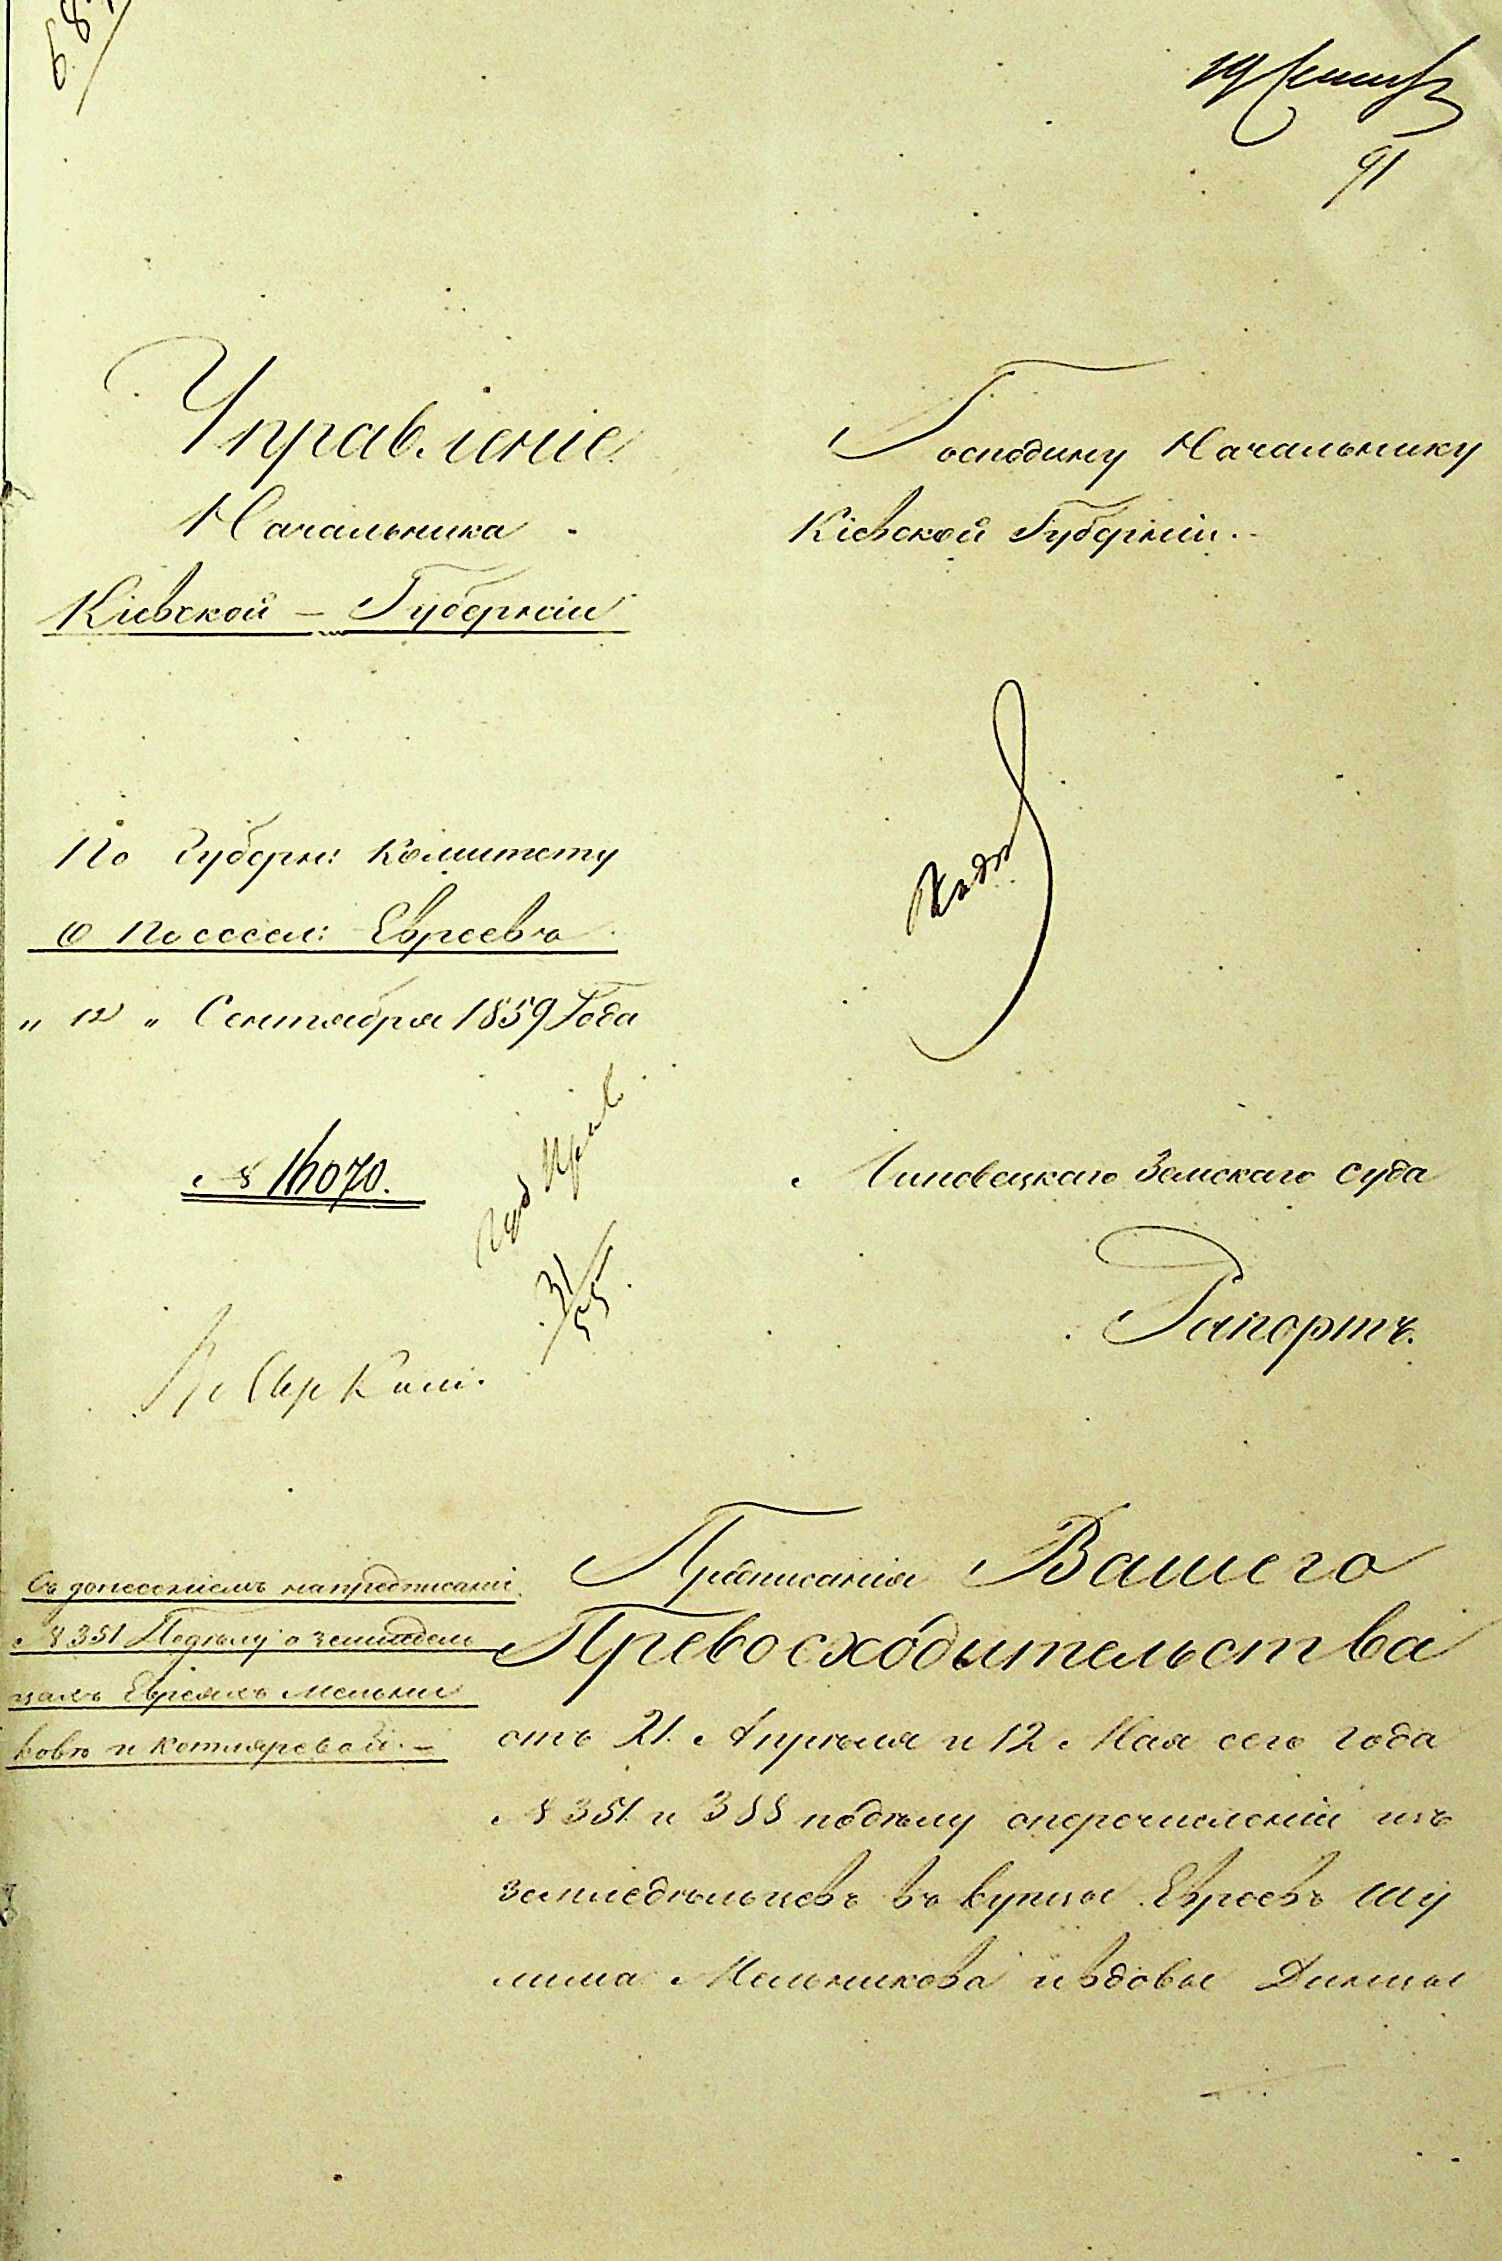 91
Управленіе
Начальника
Кіевской - Губерніи
По Губерн: Комитету
О Поссел: Евреевъ
" 12 " Сентября 1859 Года
№ 16070.
31/55
Господину Начальнику
Кіевской Губерніи.
Липовецкаго Земскаго суда
Рапортъ.
Съ донесеніемъ напредписаніе
№ 351 Подѣлу о земледѣль
цахъ Евреяхъ Мельни
ковѣ и Котляревой. -
Предписанія Вашего
Превосходительства
отъ 21. Апрѣля и 12 Мая сего года
№ 351. и 388 подѣлу оперечисленіи изъ
земледѣльцевъ въ купцы Евреевъ Шу
лима Мельникова ивдовы